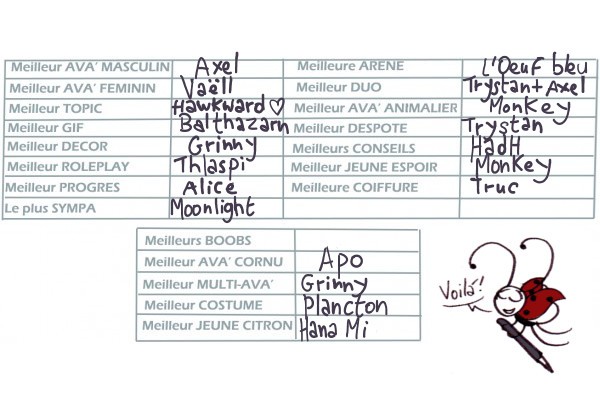 Meilleur AVA' MASCULIN Axel Meilleure ARENE L'Oeuf bleu
Meilleur AVA' FEMININ Vaëll Meilleur DUO Trystan + Axel
Meilleur TOPIC Hawkward ♡ Meilleur AVA' ANIMALIER Monkey
Meilleur GIF Balthazarn Meilleur DESPOTE Trystan
Meilleur DECOR Grinny Meilleurs CONSEILS HadH
Meilleur ROLEPLAY Thlaspi Meilleur JEUNE ESPOIR Monkey
Meilleur PROGRES Alice Meilleure COIFFURE Truc
Le plus SYMPA Moonlight
Meilleurs BOOBS
Meilleur AVA' CORNU Apo
Meilleur MULTI-AVA' Grinny
Meilleur COSTUME Plancton
Meilleur JEUNE CITRON Hana Mi
Voilà!